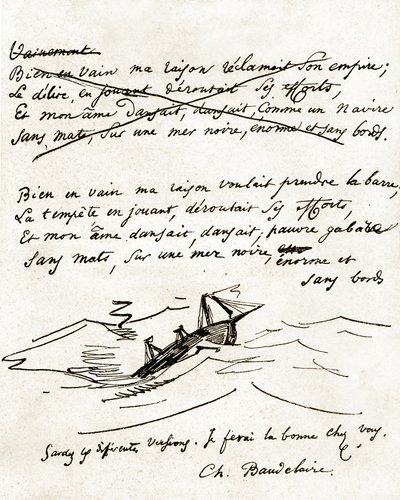 Vainement
Bien en vain ma raison réclamait son empire;
Le délire, en jouant déroutait ses efforts,
Et mon âme dansait, dansait, comme un navire
Sans mats, sur une mer noire, énorme et sans bords.
Bien en vain ma raison voulait prendre la barre,
La tempête en jouant, déroutait ses efforts,
Et mon âme dansait, dansait, pauvre gabare
Sans mats, sur une mer noire, énorme et
sans bords
Gardez ces différentes versions. Je ferai la bonne chez vous.
Ch. Baudelaire.